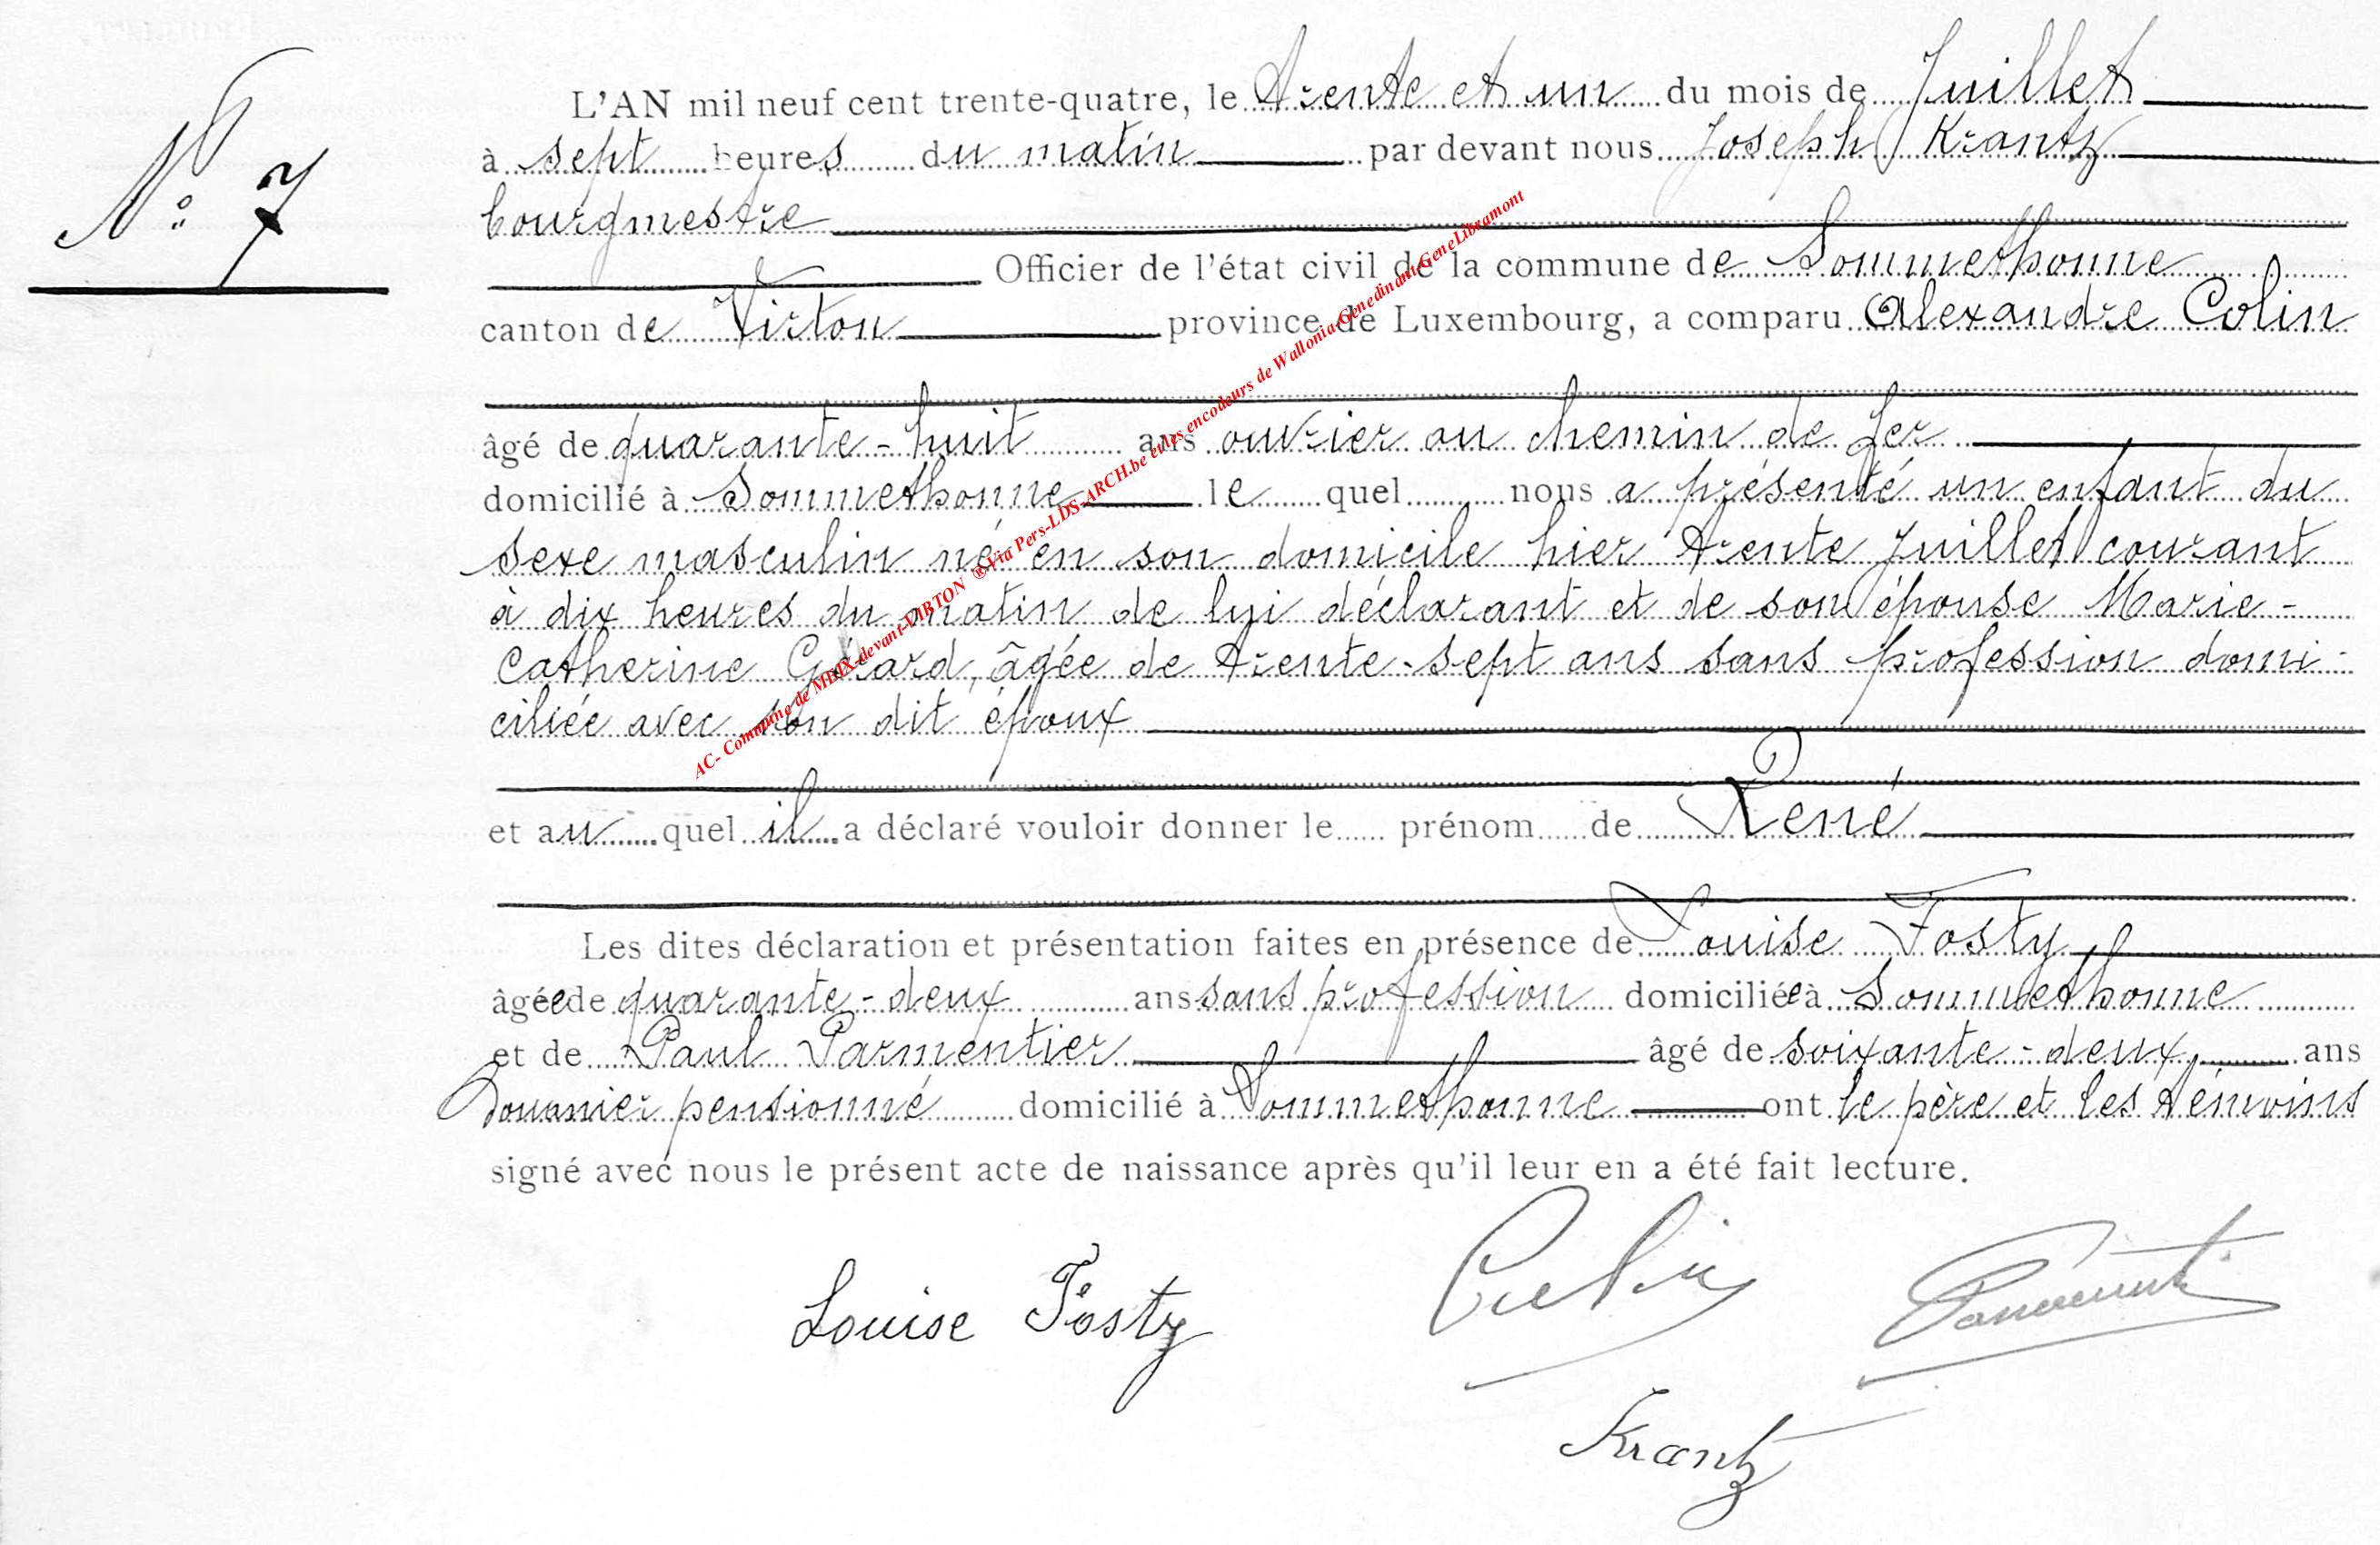 N° 7
L'AN mil neuf cent trente-quatre, le trente et un du mois de Juillet
à sept heures du matin par devant nous Joseph Krantz
bourgmestre
Officier de l'état civil de la commune de Sommethonne
canton de Virton province de Luxembourg, a comparu Alexandre Colin
âgé de quarante-huit ans ouvrier au chemin de fer
domicilié à Sommethonne le quel nous a présenté un enfant du
sexe masculin né en son domicile hier trente Juillet courant
à dix heures du matin de lui déclarant et de son épouse Marie-
Catherine Gérard, âgée de trente-sept ans sans profession domi-
ciliée avec son dit époux
et au quel il a déclaré vouloir donner le prénom de René
Les dites déclaration et présentation faites en présence de Louise Fosty
âgée de quarante-deux ans sans profession domiciliée à Sommethonne
et de Paul Parmentier âgé de soixante-deux ans
Douanier pensionné domicilié à Sommethonne ont le père et les témoins
signé avec nous le présent acte de naissance après qu'il leur en a été fait lecture.
Louise Fosty Colin Parmentier
Krantz
AC- Commune de MEIX-devant-VIRTON ®Via Pers-LDS-ARCH.be et les encodeurs de Wallonia-Genedinant-GeneLibramont